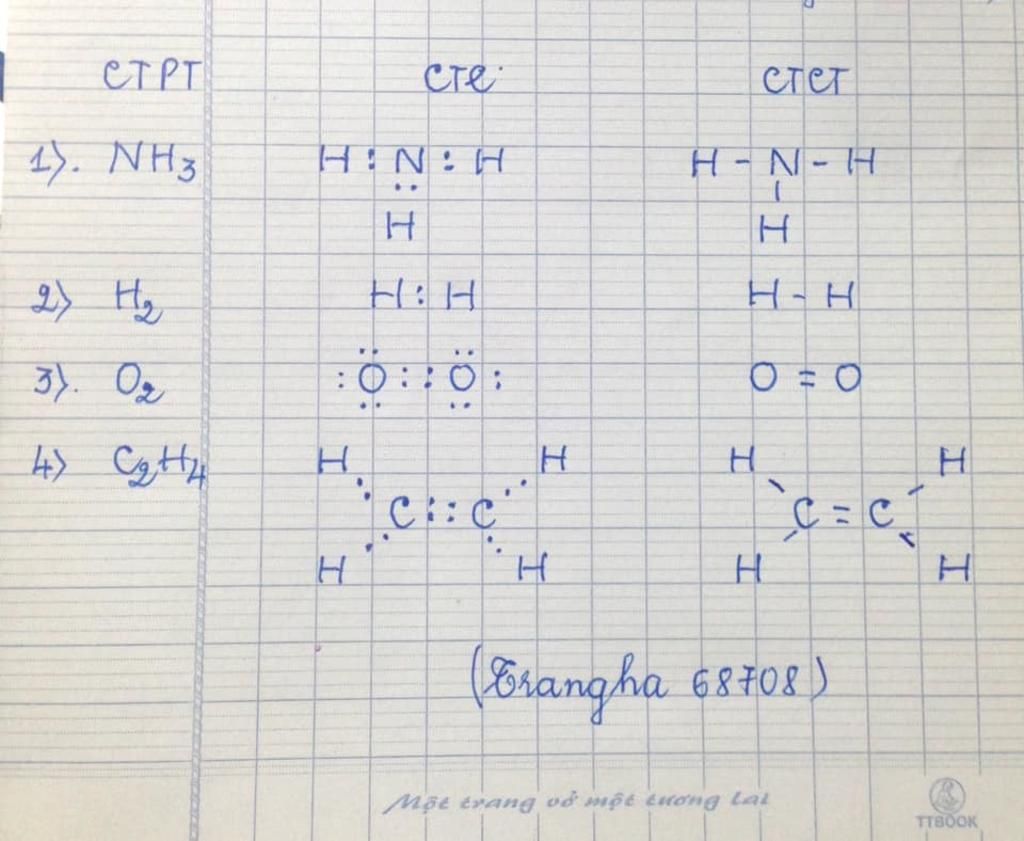 CTPT CTe CTCT
1). NH3 H : N : H H - N - H
H H
2) H2 H : H H - H
3). O2 : O : : O : O = O
4) C2H4 H H H H
C : : C C = C
H H H H
(Trangha 68708)
Một trang vở một tương lai
TTBOOK